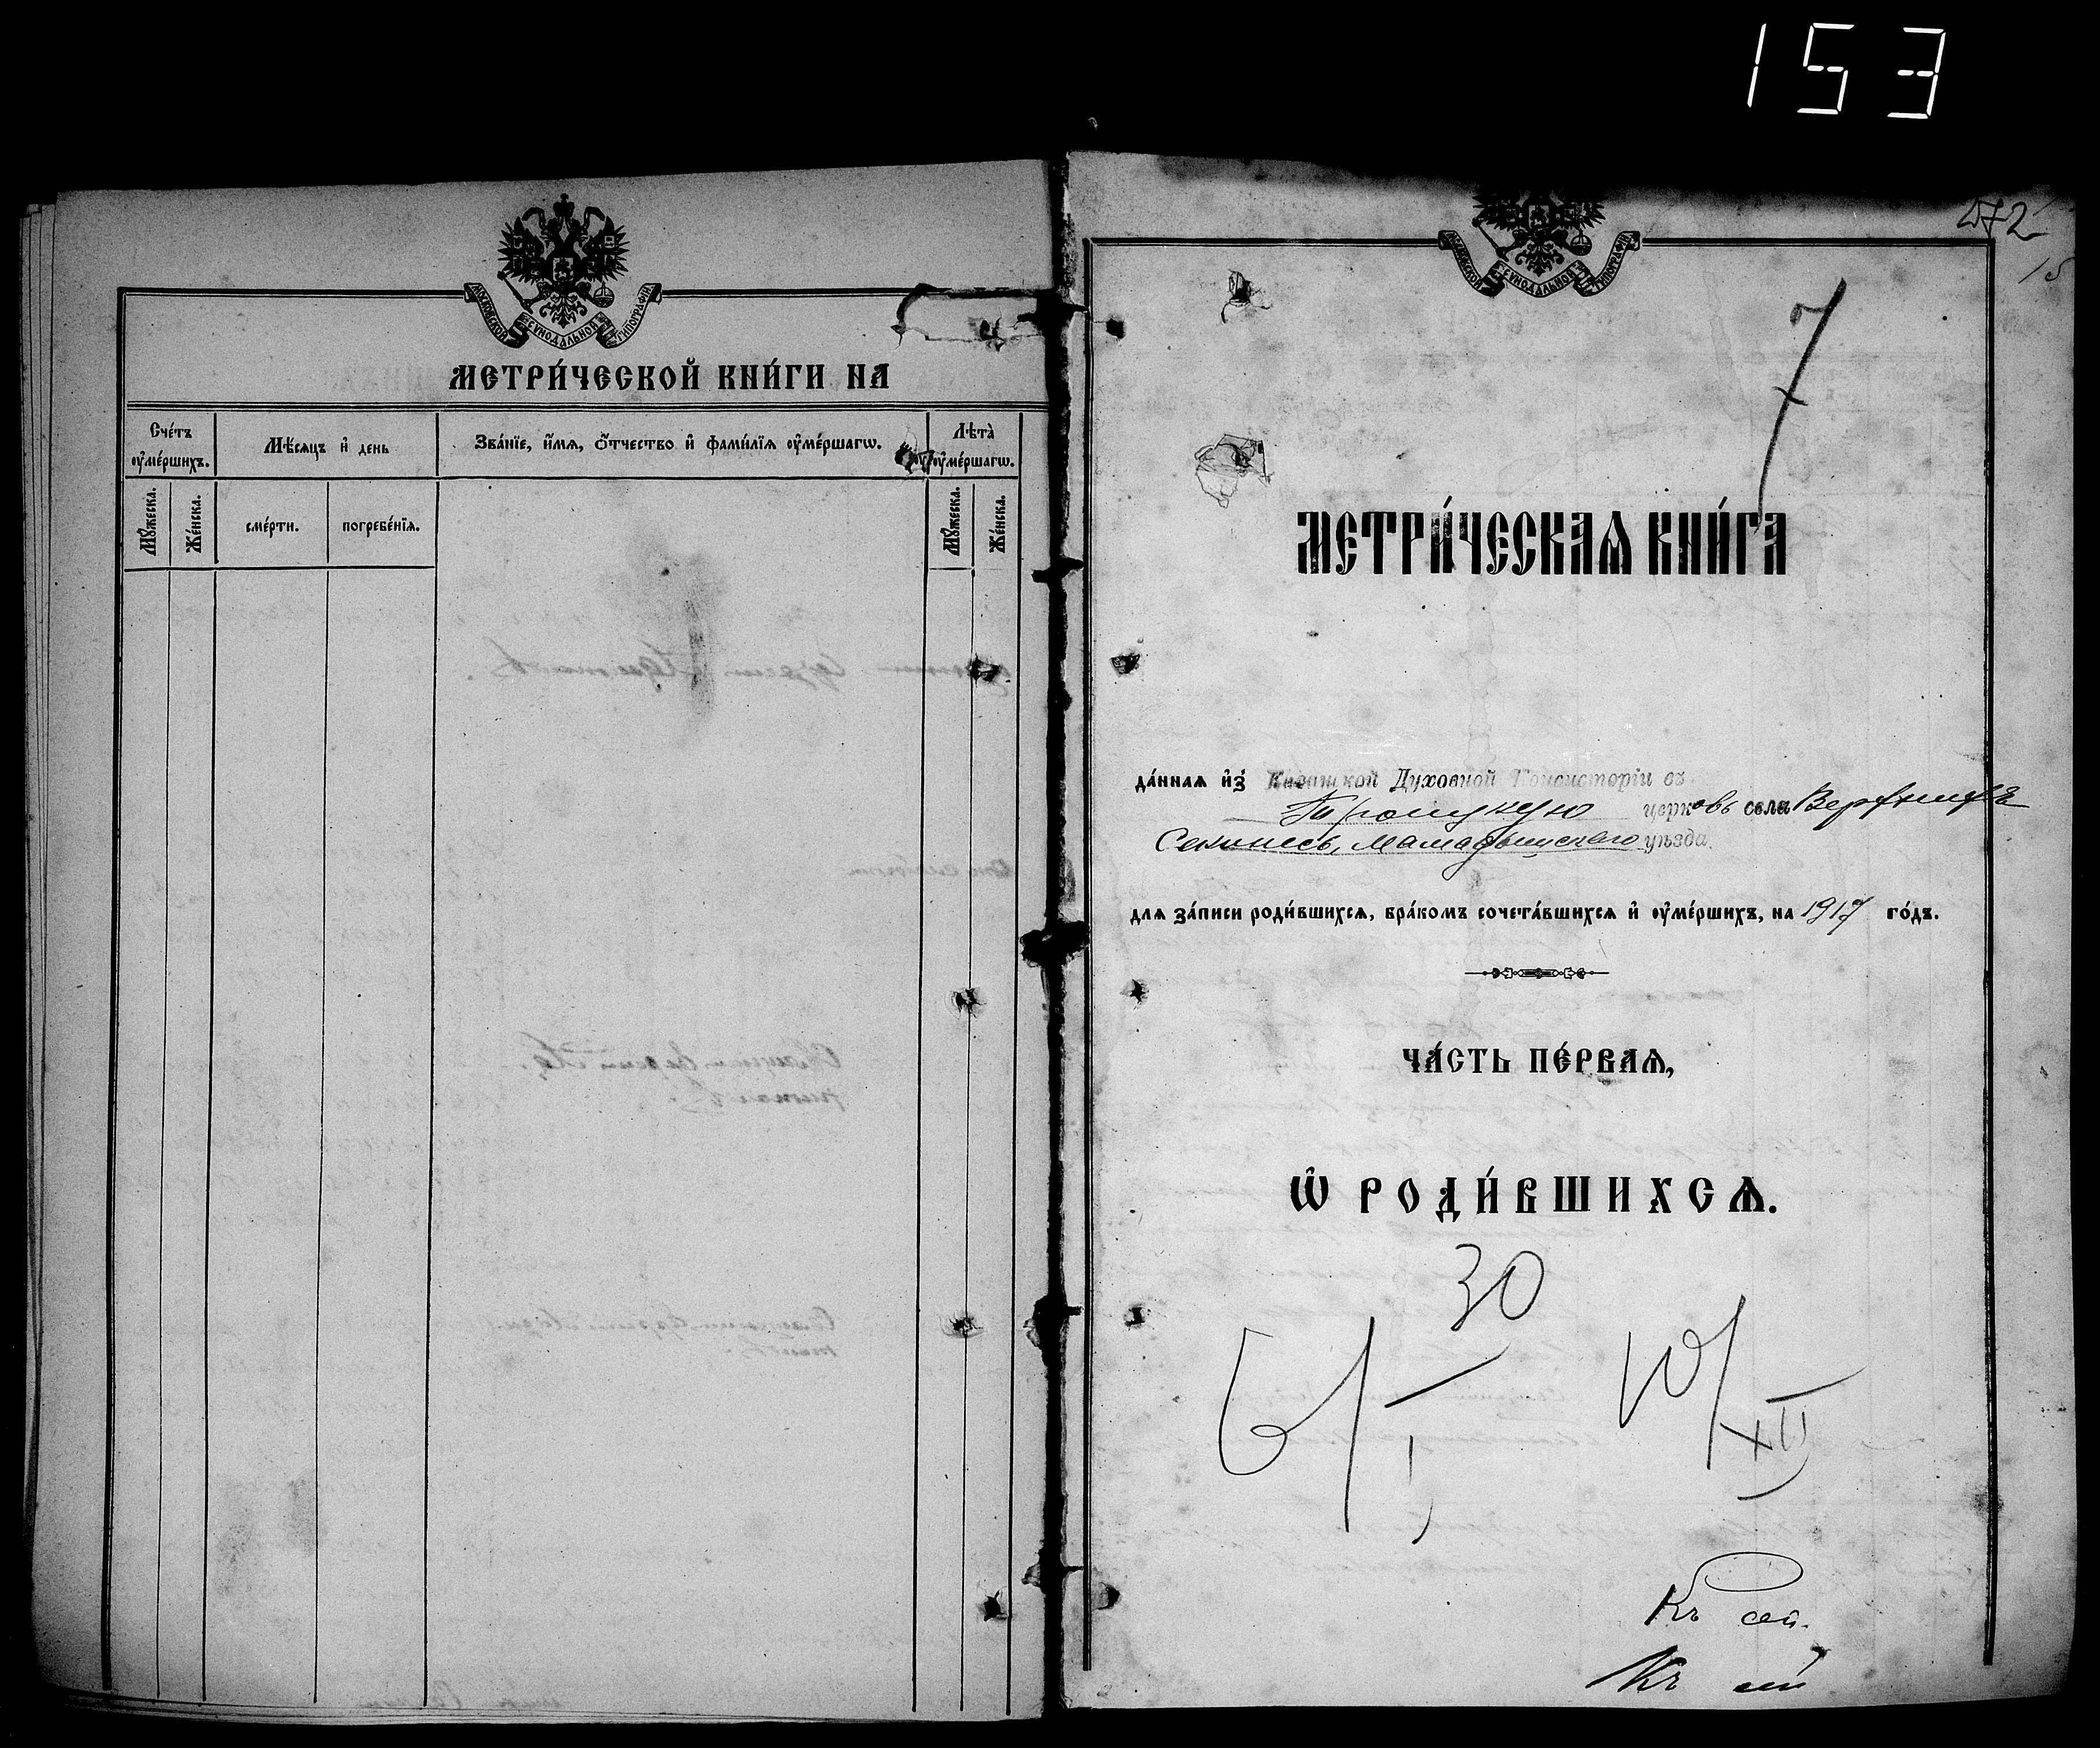 153
МОСКОВСКОЙ СѴНОДАЛЬНОЙ ТИПОГРАФІИ
МЕТРИ́ЧЕСКОЙ КНИ́ГИ НА
Сче́тъ ᲂу҆ме́ршихъ.
Мѣ́сяцъ и҆ день
Зва́нїе, и҆́мѧ, ѻ҆́тчество и҆ фами́лїѧ ᲂу҆ме́ршагѡ.
Лѣта̀ ᲂу҆ме́ршагѡ.
Мꙋ́жеска.
Же́нска.
сме́рти.
погребе́нїѧ.
Мꙋ́жеска.
Же́нска.
472
15
МОСКОВСКОЙ СѴНОДАЛЬНОЙ ТИПОГРАФІИ
7
МЕТРИ́ЧЕСКАѦ КНИ́ГА
да́ннаѧ и҆з̾ Казанской Духовной Консисторіи въ
Троицкую церковь села Верхнихъ
Секинесь, Мамадышскаго уѣзда.
для за́писи роди́вшихсѧ, бра́комъ сочета́вшихсѧ и҆ ᲂу҆ме́ршихъ, на 1917 го́дъ.
ЧА́СТЬ ПЕ́РВАѦ,
Ѽ РОДИ́ВШИХСѦ.
30
6/I
10/XII
Къ
Къ